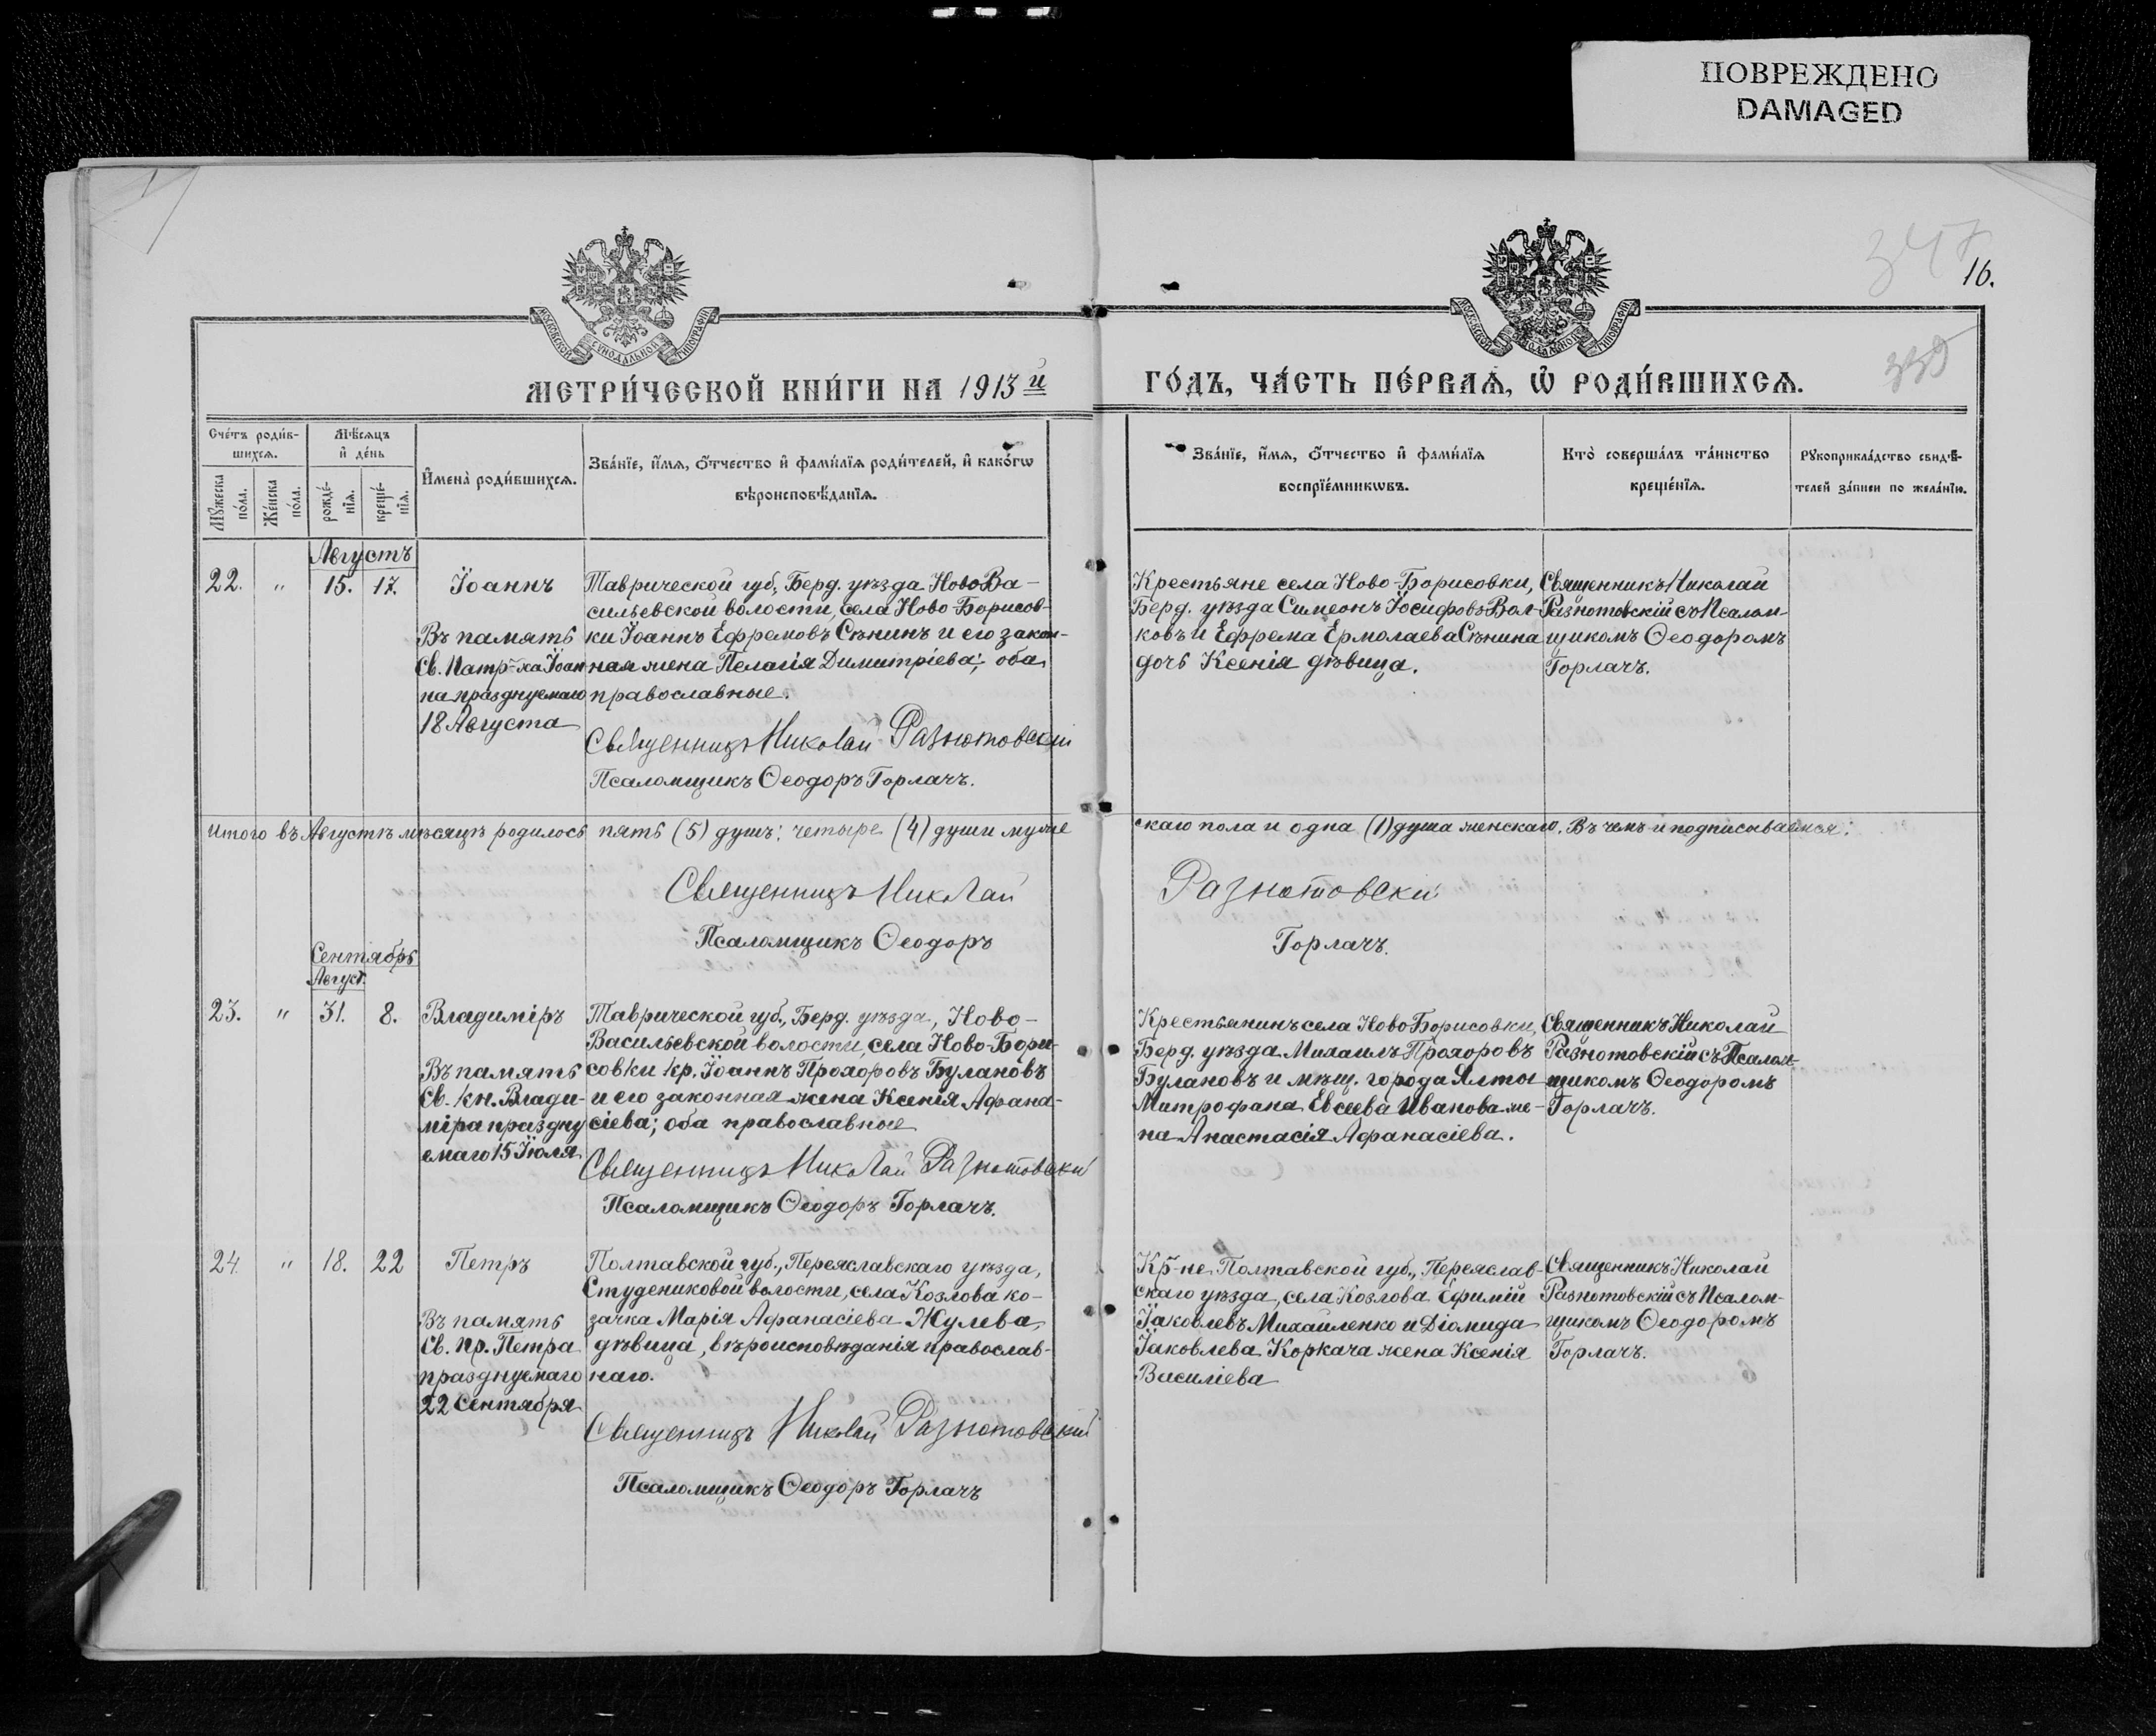 ПОВРЕЖДЕНО
DAMAGED
347
16.
339
МОСКОВСКОЙ СУНОДАЛЬНОЙ ТИПОГРАФІИ
МЕТРИ́ЧЕСКОЙ КНИ́ГИ НА 1913й
ГО́ДЪ, ЧА́СТЬ ПЕ́РВАѦ, Ѽ РОДИ́ВШИХСѦ.
Сче́тъ роди́в-
шихсѧ.
Мѣ́сѧцъ
и҆ де́нь
И҆мена̀ роди́вшихсѧ.
Зва́нїе, и҆́мѧ, ѻ҆́тчество и҆ фами́лїѧ роди́телей, и҆ како́гѡ
вѣроисповѣ́данїѧ.
Мꙋ́жеска
по́ла.
Же́нска
по́ла.
рожде́-
нїѧ.
креще́-
нїѧ.
Зва́нїе, и҆́мѧ, ѻ҆́тчество и҆ фами́лїѧ
воспрїе́мникѡвъ.
Кто̀ соверша́лъ та́инство
креще́нїѧ.
Рꙋкоприкла́дство свидѣ́-
телей за́писи по жела́нїю.
Августъ
22. " 15. 17. Їоаннъ
Въ память
Св. Патр-ха Їоан
на празднуемаго
18 Августа
Таврической губ., Берд. уѣзда Ново Ва-
сильевской волости, села Ново-Борисов-
ки Їоаннъ Ефремовъ Сѣнинъ и его закон-
ная жена Пелагія Димитріева; оба
православные.
Священникъ Николай Разнотовскій
Псаломщикъ Ѳеодоръ Горлачъ.
Крестьяне села Ново-Борисовки,
Берд. уѣзда Симеонъ Їосифовъ Вол-
ковъ и Ефрема Ермолаева Сѣнина
дочь Ксенія дѣвица.
Священникъ Николай
Разнотовскій съ Псалом-
щикомъ Ѳеодоромъ
Горлачъ.
Итого въ Августѣ мѣсяцѣ родилось пять (5) душъ: четыре (4) души муже
скаго пола и одна (1) душа женскаго. Въ чемъ и подписываемся:
Священникъ Николай Разнотовскій
Псаломщикъ Ѳеодоръ Горлачъ.
Сентябрь
Август.
23. " 31. 8. Владиміръ
Въ память
Св. кн. Влади-
міра праздну
емаго 15 Їюля
Таврической губ., Берд. уѣзда, Ново-
Васильевской волости, села Ново-Бори-
совки кр. Їоаннъ Прохоровъ Булановъ
и его законная жена Ксенія Афана-
сіева; оба православные
Священникъ Николай Разнотовскій
Псаломщикъ Ѳеодоръ Горлачъ.
Крестьянинъ села Ново Борисовки,
Берд. уѣзда Михаилъ Прохоровъ
Булановъ и мѣщ. города Ялты
Митрофана Евсеева Иванова же-
на Анастасія Афанасіева.
Священникъ Николай
Разнотовскій съ Псалом-
щикомъ Ѳеодоромъ
Горлачъ.
24. " 18. 22 Петръ
Въ память
Св. пр. Петра
празднуемаго
22 Сентября
Полтавской губ., Переяславскаго уѣзда,
Студениковой волости, села Козлова ко-
зачка Марія Афанасіева Жулева,
дѣвица, вѣроисповѣданія православ-
наго.
Священникъ Николай Разнотовскій
Псаломщикъ Ѳеодоръ Горлачъ
Кр-не Полтавской губ., Переяслав-
скаго уѣзда, села Козлова Ефимій
Їаковлевъ Михайленко и Діомида
Їаковлева Коркача жена Ксенія
Василіева
Священникъ Николай
Разнотовскій съ Псалом-
щикомъ Ѳеодоромъ
Горлачъ.